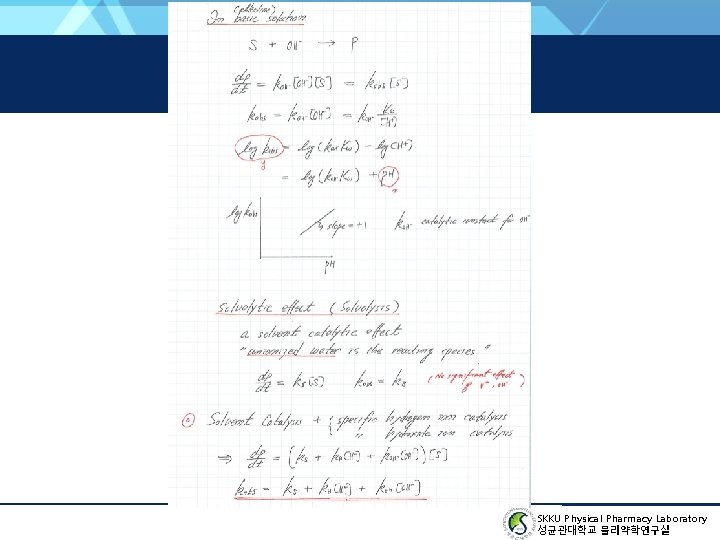 (alkaline)
In basic solution
S + OH⁻ → P
dp/dt = kOH⁻[OH⁻][S] = kobs[S]
kobs = kOH⁻[OH⁻] = kOH⁻ Kw/[H⁺]
log kobs = log(kOH⁻Kw) - log[H⁺]
y
= log(kOH⁻Kw) + pH
x
log kobs
slope = +1
kOH⁻ catalytic constant for OH⁻
pH
Solvolytic effect (Solvolysis)
a solvent catalytic effect
"unionized water is the reacting species"
dp/dt = ks[S] kobs = ks (No significant effect
of H⁺, OH⁻)
Solvent Catalysis + { specific hydrogen ion catalysis
" hydroxide ion catalysis
⇒ dp/dt = (ks + kH[H⁺] + kOH⁻[OH⁻])[S]
kobs = ks + kH[H⁺] + kOH[OH⁻]
SKKU Physical Pharmacy Laboratory
성균관대학교 물리약학연구실